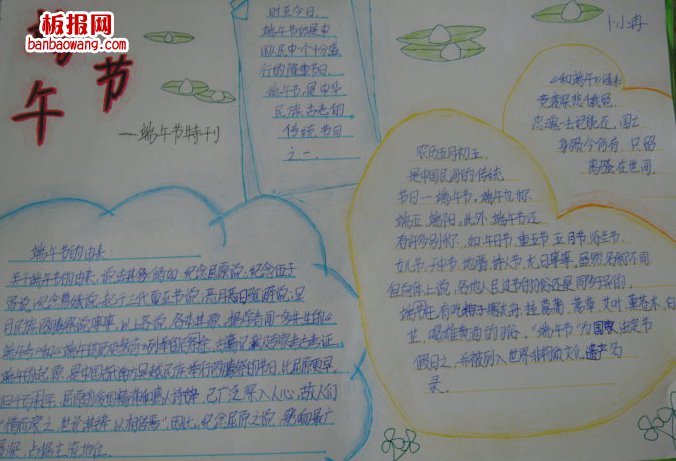 板报网
www.banbaowang.com
端
午
节
—端午节特刊
时至今日,
端午节仍是中
国民中一个十分盛
行的隆重节日.
端午节是中华
民族古老的
传统节日
之一.
《和端午》
竞渡深悲千载冤,
忠魂一去讵能还. 国亡
身殒今何有, 只留
离骚在世间.
农历五月初五,
是中国民间的传统
节日—端午节,端午也称
端五, 端阳. 此外, 端午节还
有许多别称, 如: 午日节, 重五节, 五月节, 浴兰节,
女儿节, 地腊, 诗人节, 龙日等等. 虽然名称不同
但总体上说, 各地人民过节的习俗还是同多于异的.
挂菖蒲, 蒿草, 艾叶, 薰苍术, 白
芷, 喝雄黄酒的习俗. "端午节"为国家法定节
假日之一, 并被列入世界非物质文化遗产名
录.
端午节的由来:
关于端午节的由来, 说法甚多, 诸如: 纪念屈原说; 纪念伍子
胥说; 纪念曹娥说; 起于三代夏至节说; 恶月恶日驱避说; 吴
月民族图腾祭说等等. 以上各说, 各本其源. 据学者闻一多先生的《
端午考》和《端午的历史教育》列举的百余条古籍记载及专家考古考证,
端午的起源, 是中国古代南方吴越民族举行图腾祭的节日, 比屈原更早.
但千百年来, 屈原的爱国精神和感人诗辞, 已广泛深入人心, 故人们
"惜而哀之, 世论其辞, 以相传焉", 因此, 纪念屈原之说, 影响最广
最深, 占据主流地位.